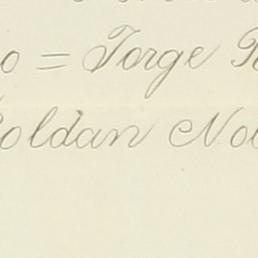 o = Jorge
Roldan No